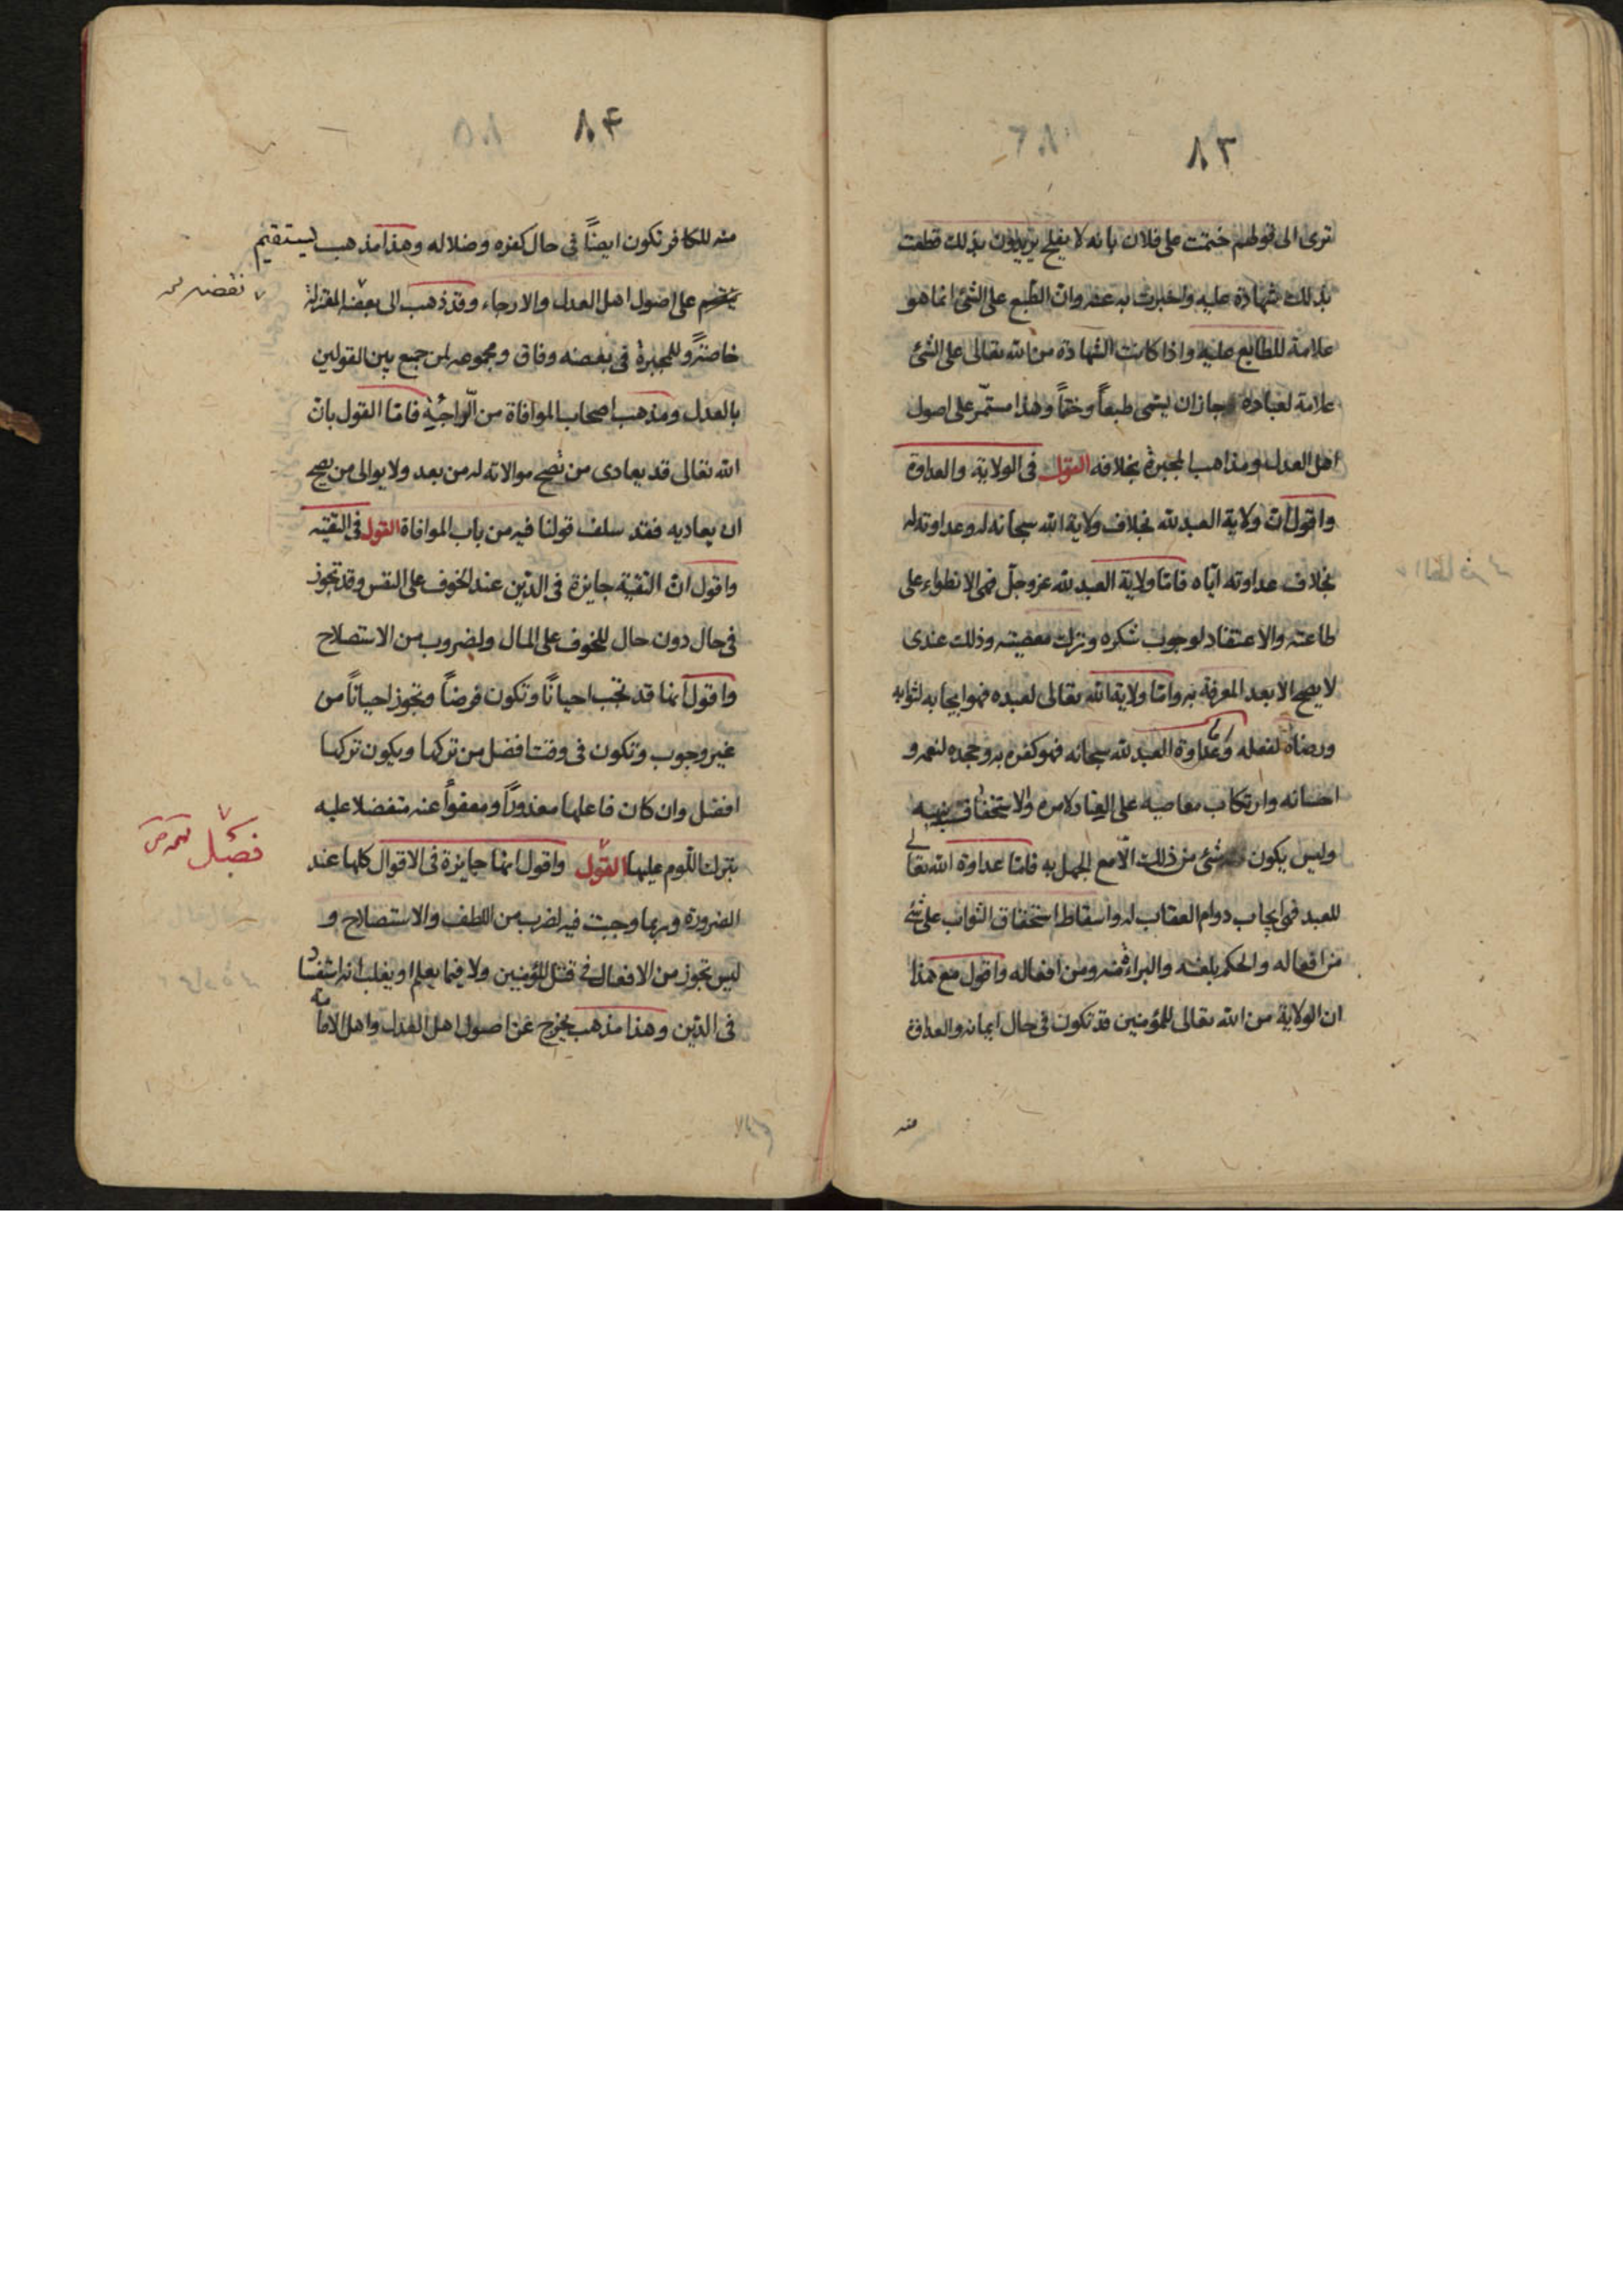 ٨٣
ترى الى قولهم ختمت على فلان بانه لا يفلح يريدون بذلك قطعت
بذلك شهادة عليه واخبرت به عنه وان الطبع على الشئ انما هو
علامة للطابع عليه واذا كانت الشهادة من الله تعالى على الشئ
علامة لعباده جاز ان يسمى طبعاً وختماً وهذا مستمرّ على اصول
اهل العدل ومذاهب المجبرة بخلافه القول فى الولاية والعداوة
واقول انّ ولاية العبد لله بخلاف ولاية الله سبحانه له وعداوته له
بخلاف عداوته ايّاه فامّا ولاية العبد لله عزوجلّ فهى الانطواء على
طاعته والاعتقاد لوجوب شكره وترك معصيته وذلك عندى
لا يصح الا بعد المعرفة به وامّا ولاية الله تعالى لعبده فهو ايجابه لثوابه
ورضاه لفعله وعداوة العبد لله سبحانه فهو كفره به وجحده لنعمه و
احسانه وارتكاب معاصيه على العناد لامره والاستخفاف بنهيه
وليس يكون شئ من ذلك الّا مع الجهل به فامّا عداوة الله تعالى
للعبد فهى ايجاب دوام العقاب له واسقاط استحقاق الثواب على شئ
من افعاله والحكم بلعنه والبراءة منه ومن افعاله واقول مع هذا
ان الولاية من الله تعالى للمؤمنين قد تكون فى حال ايمانه والعداوة
منه
٨۴
منه للكافر تكون ايضاً فى حال كفره وضلاله وهذا مذهب يستقيم
على اصول اهل العدل والارجاء وقد ذهب الى بعضه المعتزلة
نقضه
خاصّة وللمجبرة فى بعضه وفاق ومجموعه لمن جمع بين القولين
بالعدل ومذهب اصحاب الموافاة من الراجئة فامّا القول بانّ
الله تعالى قد يعادى من تصح موالاته له من بعد ولا يوالى من يصح
ان يعاديه فقد سلف قولنا فيه من باب الموافاة القول فى التقيّه
واقول انّ التقية جايزة فى الدّين عند الخوف على النفس وقد تجوز
فى حال دون حال للخوف على المال ولضروب من الاستصلاح
واقول انّها قد تجب احياناً وتكون فرضاً وتجوز احياناً من
غير وجوب وتكون فى وقت افضل من تركها ويكون تركها
افضل وان كان فاعلها معذوراً ومعفواً عنه متفضلا عليه
بترك اللّوم عليها القول واقول انّها جايزة فى الاقوال كلها عند
فصل
الضرورة وربما وجبت فيه لضرب من اللطف والاستصلاح و
ليس تجوز من الافعال فى قتل المؤمنين ولا فيما يعلم او يغلب انه استفساد
فى الدّين وهذا مذهب يخرج عن اصول اهل العدل واهل الامامة